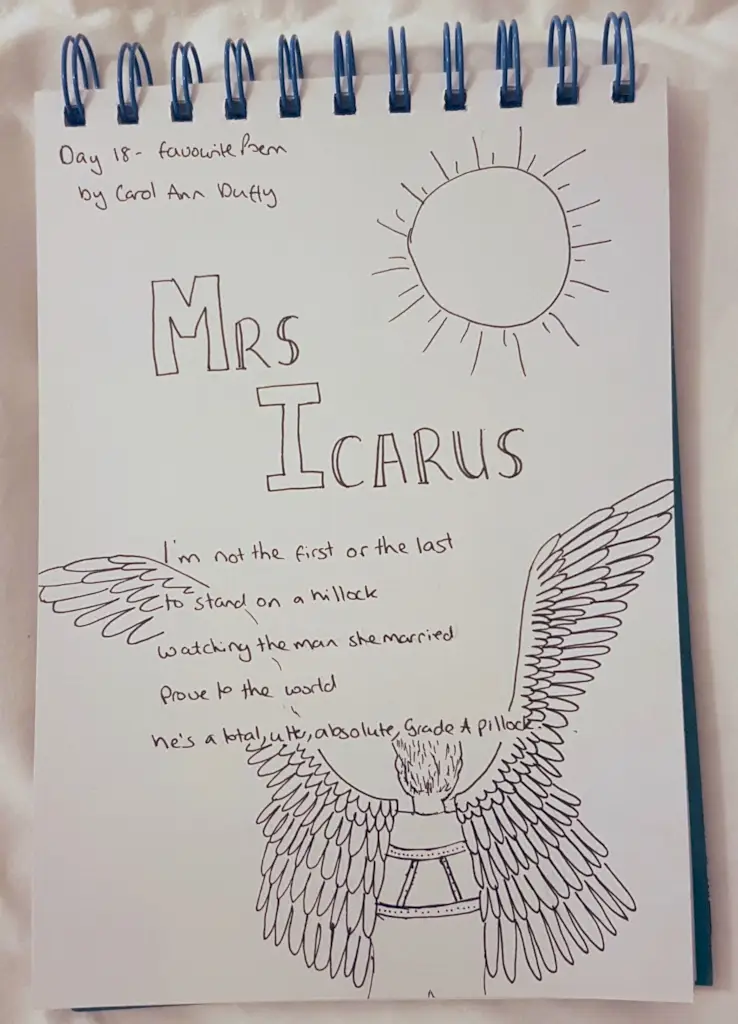 Day 18 - favourite Poem
by Carol Ann Duffy
MRS
ICARUS
I'm not the first or the last
to stand on a hillock
watching the man she married
prove to the world
he's a total, utter, absolute, Grade A pillock.